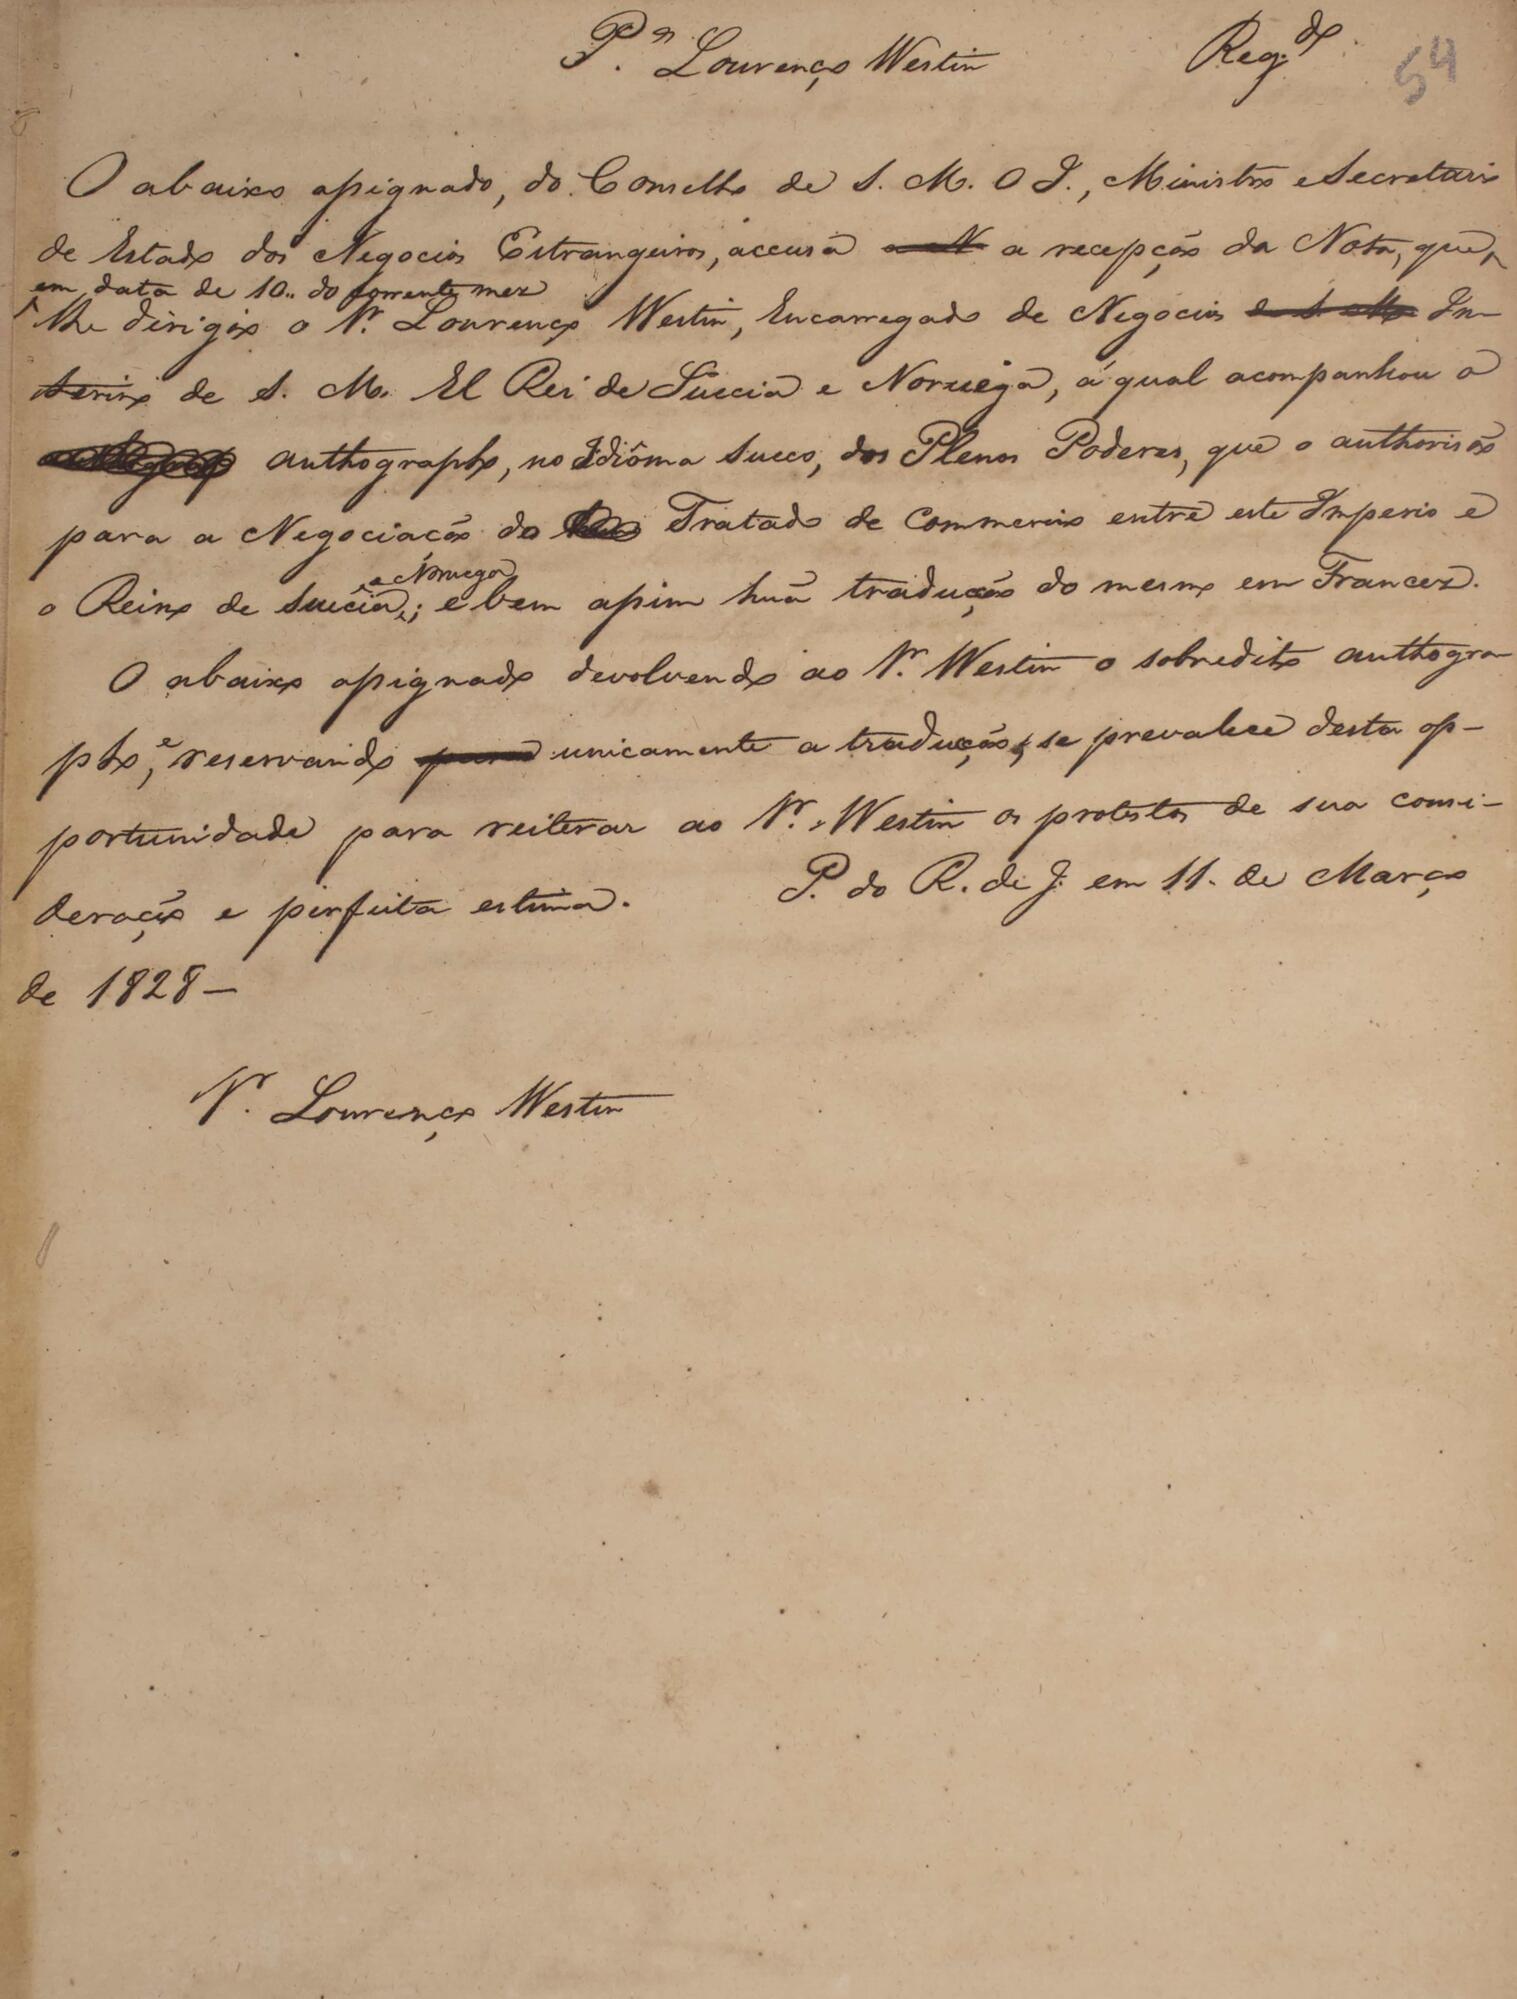 P.ª Lourenço Westin Reg.do 54
O abaixo assignado, do Conselho de S. M. O I., Ministro e Secretario
de Estado dos Negocios Estrangeiros, accusa a recepção da Nota, que,
em data de 10 do corrente mez
lhe dirigio o Sr. Lourenço Westin, Encarregado de Negocios In-
terino de S. M. El Rei de Suecia e Noruega, á qual acompanhou o
authographo, no Idiôma Sueco, dos Plenos Poderes, que o authorisão
para a Negociação do Tratado de Commercio entre este Imperio e
e Noruega
o Reino de Suecia; e bem assim huã traducção do mesmo em Francez.
O abaixo assignado devolvendo ao Sr. Westin o sobredito authogra-
pho, e reservando unicamente a traducção, se prevalece desta op-
portunidade para reiterar ao Sr. Westin os protestos de sua consi-
deração e perfeita estima. P. do R. de J. em 11. de Março
de 1828 —
Sr. Lourenço Westin